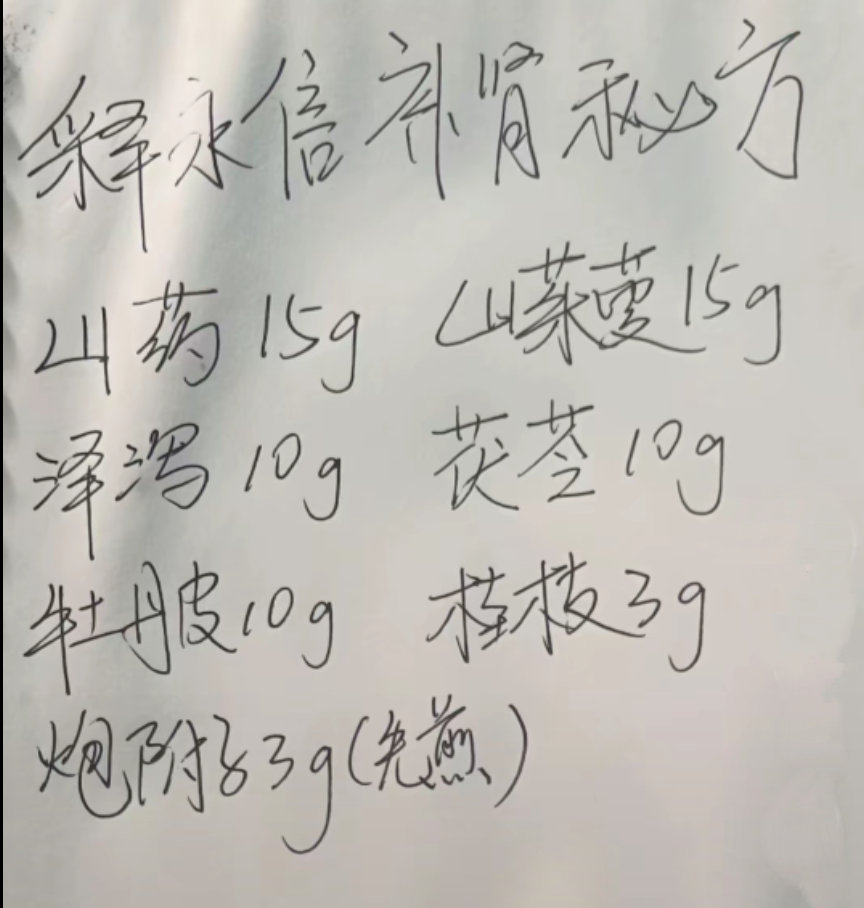 释永信补肾秘方
山药 15g 山茱萸 15g
泽泻 10g 茯苓 10g
牡丹皮 10g 桂枝 3g
炮附子 3g (先煎)